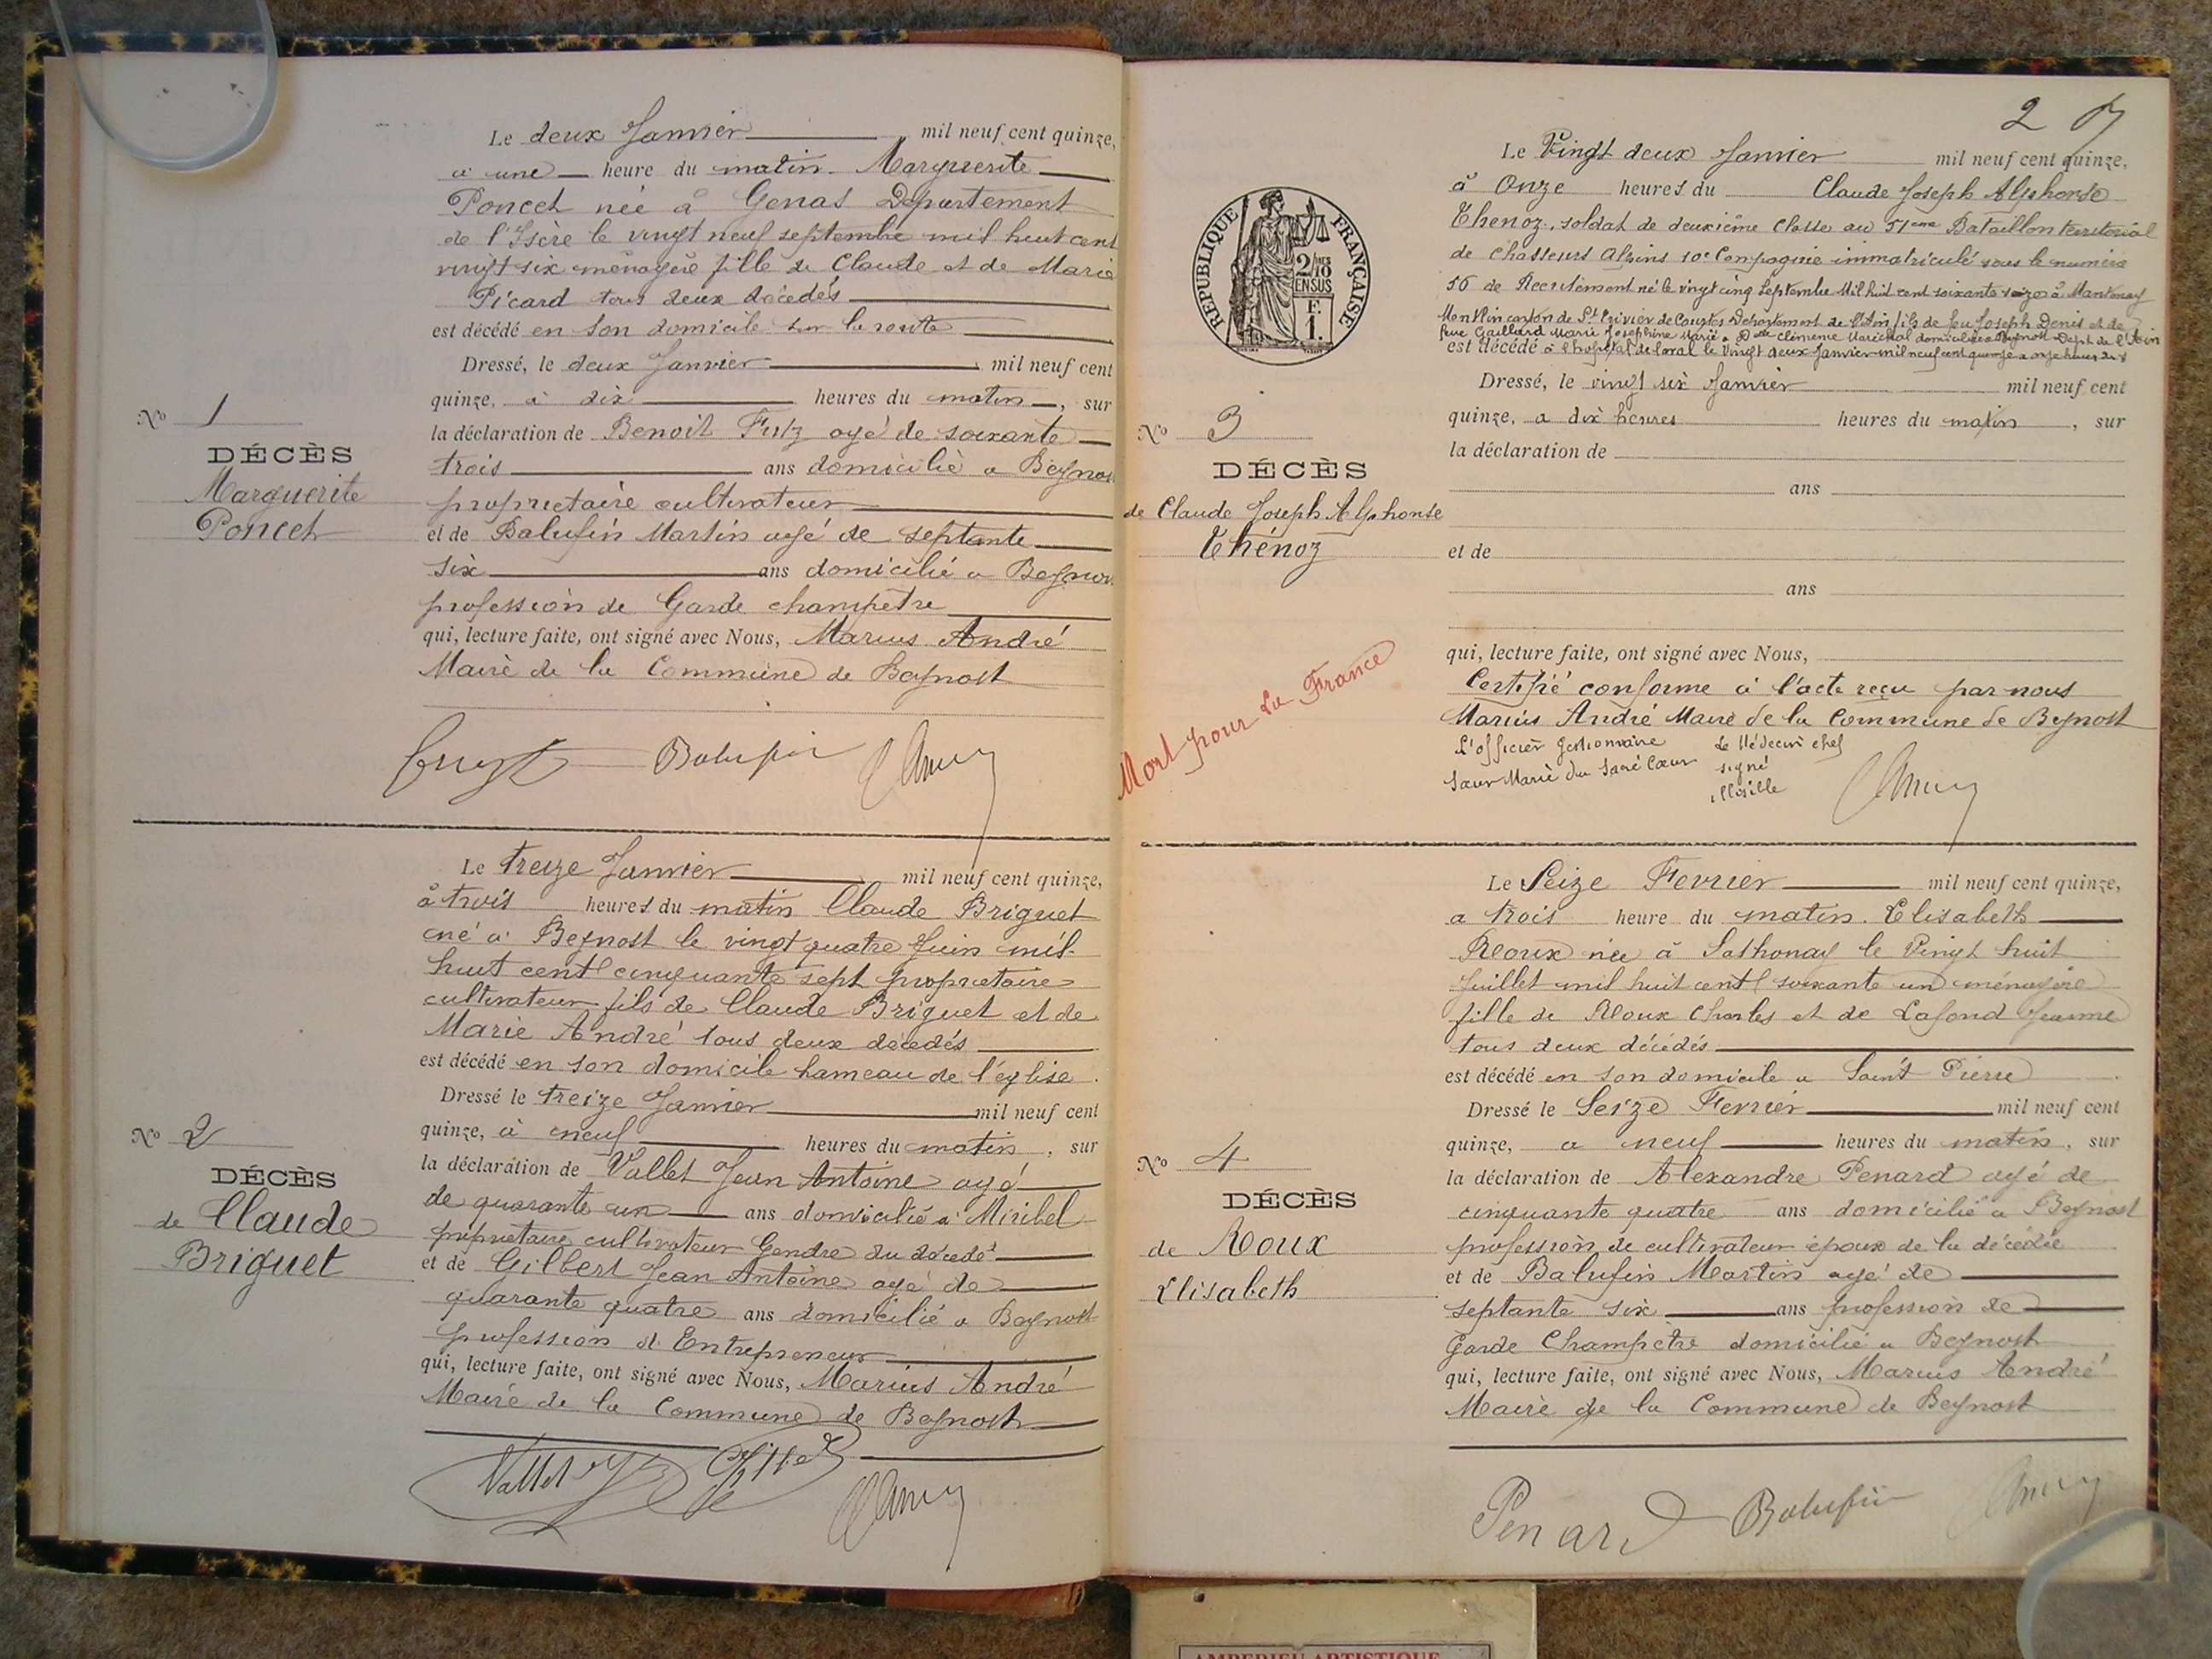 Le deux Janvier mil neuf cent quinze,
à une heure du matin. Marguerite
Poncet née à Genas Département
de l'Isère le vingt neuf septembre mil huit cent
vingt six ménagère fille de Claude et de Marie
Picard tous deux décédés
est décédé en son domicile sur la route
Dressé, le deux Janvier mil neuf cent
quinze, à dix heures du matin, sur
la déclaration de Benoit agé de soixante
trois ans domicilié a Beynost
propriétaire cultivateur
et de Balufin Martin agé de septante
six ans domicilié a Beynost
profession de Garde champêtre
qui, lecture faite, ont signé avec Nous, Marius André
Maire de la Commune de Beynost
Balufin
No 1
DÉCÈS
Marguerite
Poncet
Le treize Janvier mil neuf cent quinze,
à trois heures du matin Claude Briguet
né à Beynost le vingt quatre Juin mil
huit cent cinquante sept propriétaire
cultivateur fils de Claude Briguet et de
Marie André tous deux décédés
est décédé en son domicile hameau de l'église.
Dressé le treize Janvier mil neuf cent
quinze, à neuf heures du matin, sur
la déclaration de Vallet Jean Antoine agé
de quarante un ans domicilié a Miribel
propriétaire cultivateur Gendre du décédé
et de Gilbert Jean Antoine agé de
quarante quatre ans domicilié a Beynost
profession d'Entrepreneur
qui, lecture faite, ont signé avec Nous, Marius André
Maire de la Commune de Beynost
Vallet
No 2
DÉCÈS
de Claude
Briguet
2
Le Vingt deux Janvier mil neuf cent quinze,
à Onze heures du Claude Joseph Alphonse
Thenoz, soldat de deuxième Classe au 51eme Bataillon territorial
de Chasseurs Alpins 10e Compagnie immatriculé sous le numéro
56 de Recrutement né le vingt cinq Septembre Mil huit cent soixante seize à Mantenay
Montlin canton de St Trivier de Courtes Département de l'Ain fils de feu Joseph Denis et de
feue Gaillard Marie Josephine Marié a Delle Clémence Maréchal domiciliée a Beynost Dept de l'Ain
est décédé à l'hopital de Laval le Vingt deux Janvier mil neuf cent quinze a onze heures du
Dressé, le vingt six Janvier mil neuf cent
quinze, a dix heures heures du matin, sur
la déclaration de
ans
et de
ans
qui, lecture faite, ont signé avec Nous,
Certifié conforme à l'acte reçu par nous
Marius André Maire de la Commune de Beynost
L'officier gestionnaire Le Médecin chef
Sœur Marie du Sacré Cœur signé
RÉPUBLIQUE FRANÇAISE
2/10 EN SUS
F.
1.
No 3
DÉCÈS
de Claude Joseph Alphonse
Thénoz
Mort pour La France
Le Seize Fevrier mil neuf cent quinze,
a trois heure du matin. Elisabeth
Roux née à Sathonay le Vingt huit
Juillet mil huit cent soixante un ménagère
fille de Roux Charles et de Lafond Jeanne
tous deux décédés
est décédé en son domicile a Saint Pierre
Dressé le Seize Fevrier mil neuf cent
quinze, a neuf heures du matin, sur
la déclaration de Alexandre Penard agé de
cinquante quatre ans domicilié a Beynost
profession de cultivateur époux de la décédée
et de Balufin Martin agé de
septante six ans profession de
Garde Champêtre domicilié a Beynost
qui, lecture faite, ont signé avec Nous, Marius André
Maire de la Commune de Beynost
Penard Balufin
No 4
DÉCÈS
de Roux
Elisabeth
AMBERIEU ARTISTIQUE